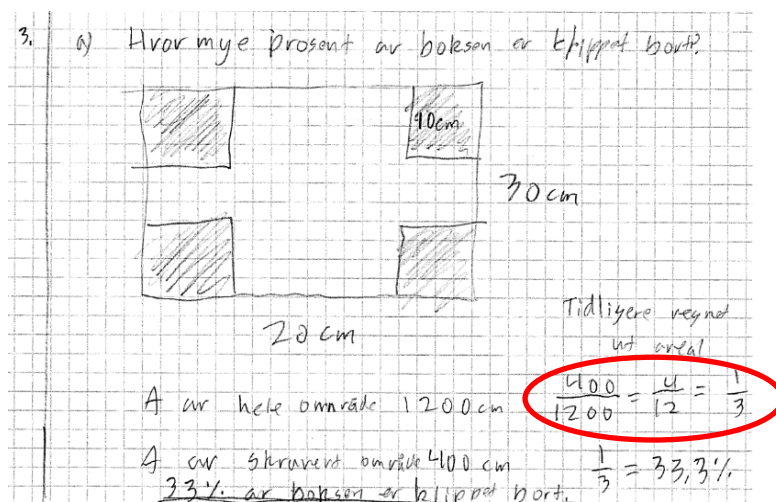 3. a) Hvor mye prosent av boksen er klippet bort?
10cm
30 cm
20 cm
Tidligere regnet
ut areal
400/1200 = 4/12 = 1/3
A av hele område 1200 cm
A av skravert område 400 cm
1/3 = 33,3%
33% av boksen er klippet bort.